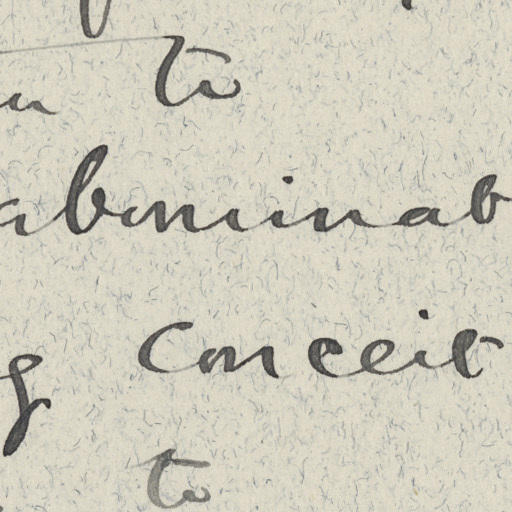 to
abominab
conceit
to